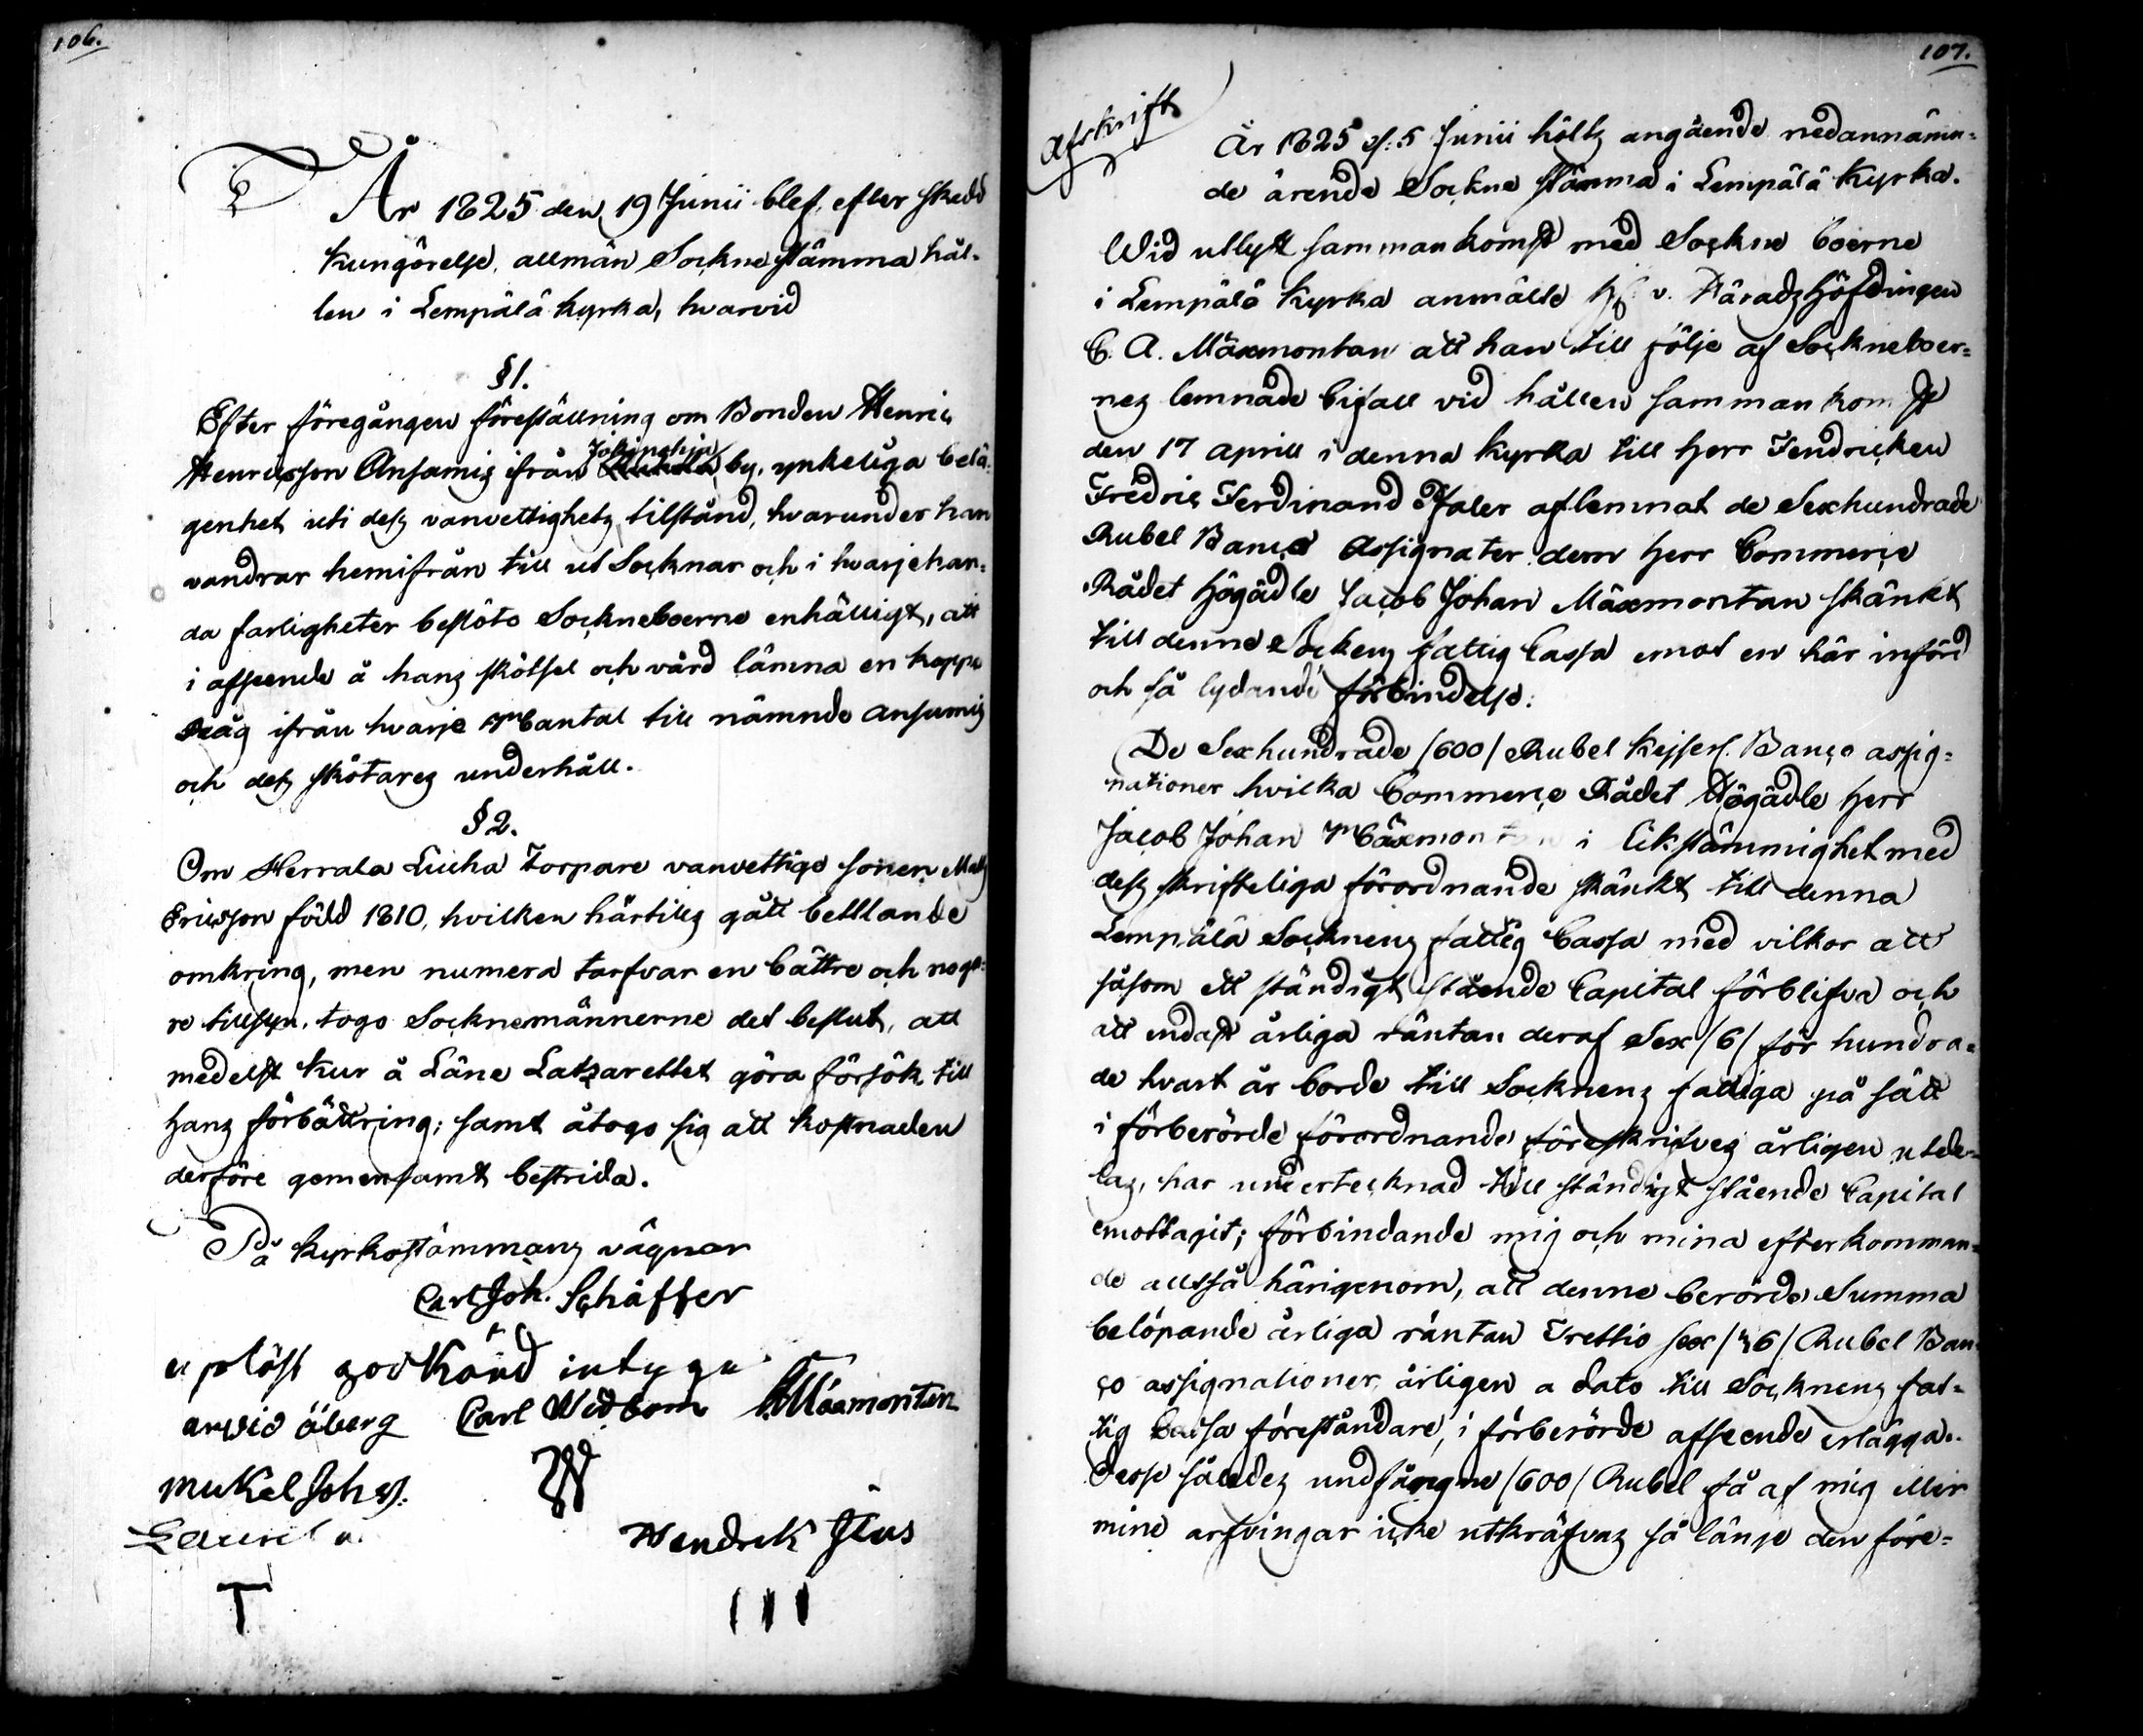 106.
År 1825 den 19 Junii blef, efter skedd
kungörelse, allmän Sockne stämma hål-
len i Lempälä kyrka, hvarvid
§1.
Efter föregången föreställning om Bonden Henric
Henricsson Ansamis ifrån Jokipohja by, ynkeliga belä-
genhet uti dess vanvettighets tilstånd, hvarunder han
vandrar hemifrån till ut Socknar och i hvarjehan-
da farligheter beslöto Sockneboerne enhälligt, att
i afseende å hans skötsel och vård lämna en kappe
Råg ifrån hvarje Mantal till nämnde Ansamis
och dess skötares underhåll.
§2.
Om Herrala Liuha Torpare vanvettige sonen Matts
Ericsson född 1810, hvilken härtills gått bettlande
omkring, men numera tarfvar en bättre och noga-
re tillsyn, togo Socknemännerne det beslut, att
medelst kur å Läne Latzarettet göra försök till
hans förbättring; samt åtogo sig att kostnaden
derföre gemensamt bestrida.
På kyrkostämmans vägnar
Carl Joh. Schäffer
uplöst godkänd intyga
arvid öberg Carl Widbom CAMäxmontan
Mickel Johs.
Laurila
Hendrik Ilus
T III
107.
Afskrift
År 1825 d. 5 Junii hölts angående nedannämn-
de ärende Sockne stämma i Lempälä Kyrka.
Wid utlyst sammankomst med Sockne boerne
i Lempälä Kyrka anmälte Hr v. Häradshöfdingen
C. A. Mäxmontan att han till följe af Sockneboer-
nes lemnade bifall vid hållen sammankomst
den 17 Aprill i denna kyrka till Herr Fendricken
Fredric Ferdinand Taler aflemnat de Sexhundrade
Rubel Banco Assignater dem Herr Commerce
Rådet Högädle Jacob Johan Mäxmontan skänkt
till denne Sockens fattig Cassa emot en här införd
och så lydande förbindelse:
De Sexhundrade /600/ Rubel Kejserl. Banco assig-
nationer hvilka Commerce Rådet Högädle Herr
Jacob Johan Mäxmontan i likstämmighet med
dess skrifteliga förordnande skänkt till denna
Lempälä Socknens fattig Cassa med vilkor att
såsom ett ständigt stående Capital förblifva och
att endast årliga räntan deraf Sex /6/ för hundra-
de hvart år borde till Socknens fattiga på sätt
i förberörde förordnande föreskrifves årligen utde-
las, har undertecknad till ständigt stående Capital
emottagit; förbindande mig och mina efterkomman-
de alltså härigenom, att denne berörde Summa
belöpande årliga räntan Trettio sex /36/ Rubel Ban-
co assignationer årligen a dato till Socknens fat-
tig Cassa föreståndare, i förberörde afseende erlägga.
Desse således undfångne /600/ Rubel få af mig eller
mine arfvingar icke utkräfvas så länge den före-